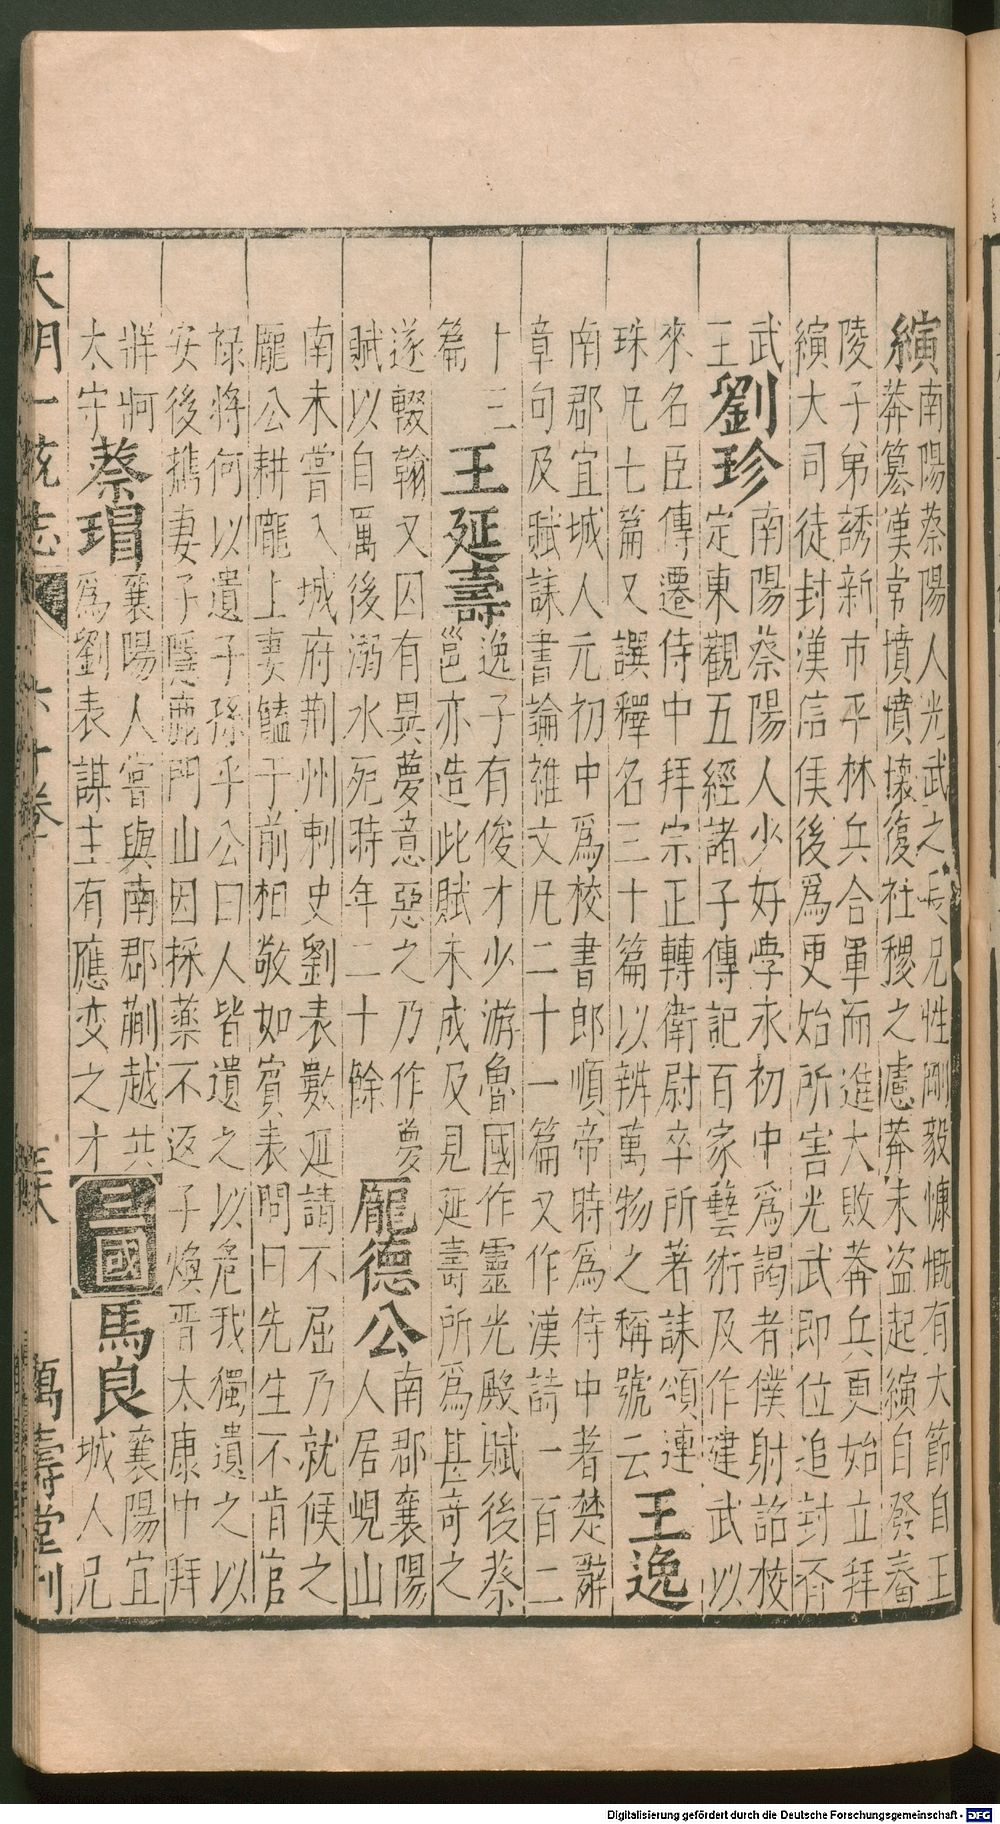 縯南陽蔡陽人光武之長兄性剛毅慷慨有大節自王
莽篡漢常憤憤懷復社稷之慮莽末盜起縯自發舂
陵子弟誘新市平林兵合軍而進大敗莽兵更始立拜
縯大司徒封漢信侯後爲更始所害光武即位追封齊
武王
劉珍
南陽蔡陽人少好學永初中爲謁者僕射詔校
定東觀五經諸子傳記百家藝術及作建武以
來名臣傳遷侍中拜宗正轉衛尉卒所著誄頌連
珠凡七篇又譔釋名三十篇以辨萬物之稱號云
王逸
南郡宜城人元初中爲校書郎順帝時爲侍中著楚辭
章句及賦誄書論雜文凡二十一篇又作漢詩一百二
十三篇
王延壽
逸子有俊才少游魯國作靈光殿賦後蔡
邕亦造此賦未成及見延壽所爲甚奇之
遂輟翰又因有異夢意惡之乃作夢
賦以自厲後溺水死時年二十餘
龐德公
南郡襄陽
人居峴山
南未嘗入城府荊州刺史劉表數延請不屈乃就候之
龐公耕隴上妻饁于前相敬如賓表問曰先生不肯官
祿將何以遺子孫乎公曰人皆遺之以危我獨遺之以
安後攜妻子隱鹿門山因採藥不返子煥晉太康中拜
牂牁太守
蔡瑁
襄陽人嘗與南郡蒯越共
爲劉表謀主有應变之才
三國
馬良
襄陽宜
城人兄
大明一統志
六十卷
三大
萬壽堂刊
Digitalisierung gefördert durch die Deutsche Forschungsgemeinschaft - DFG